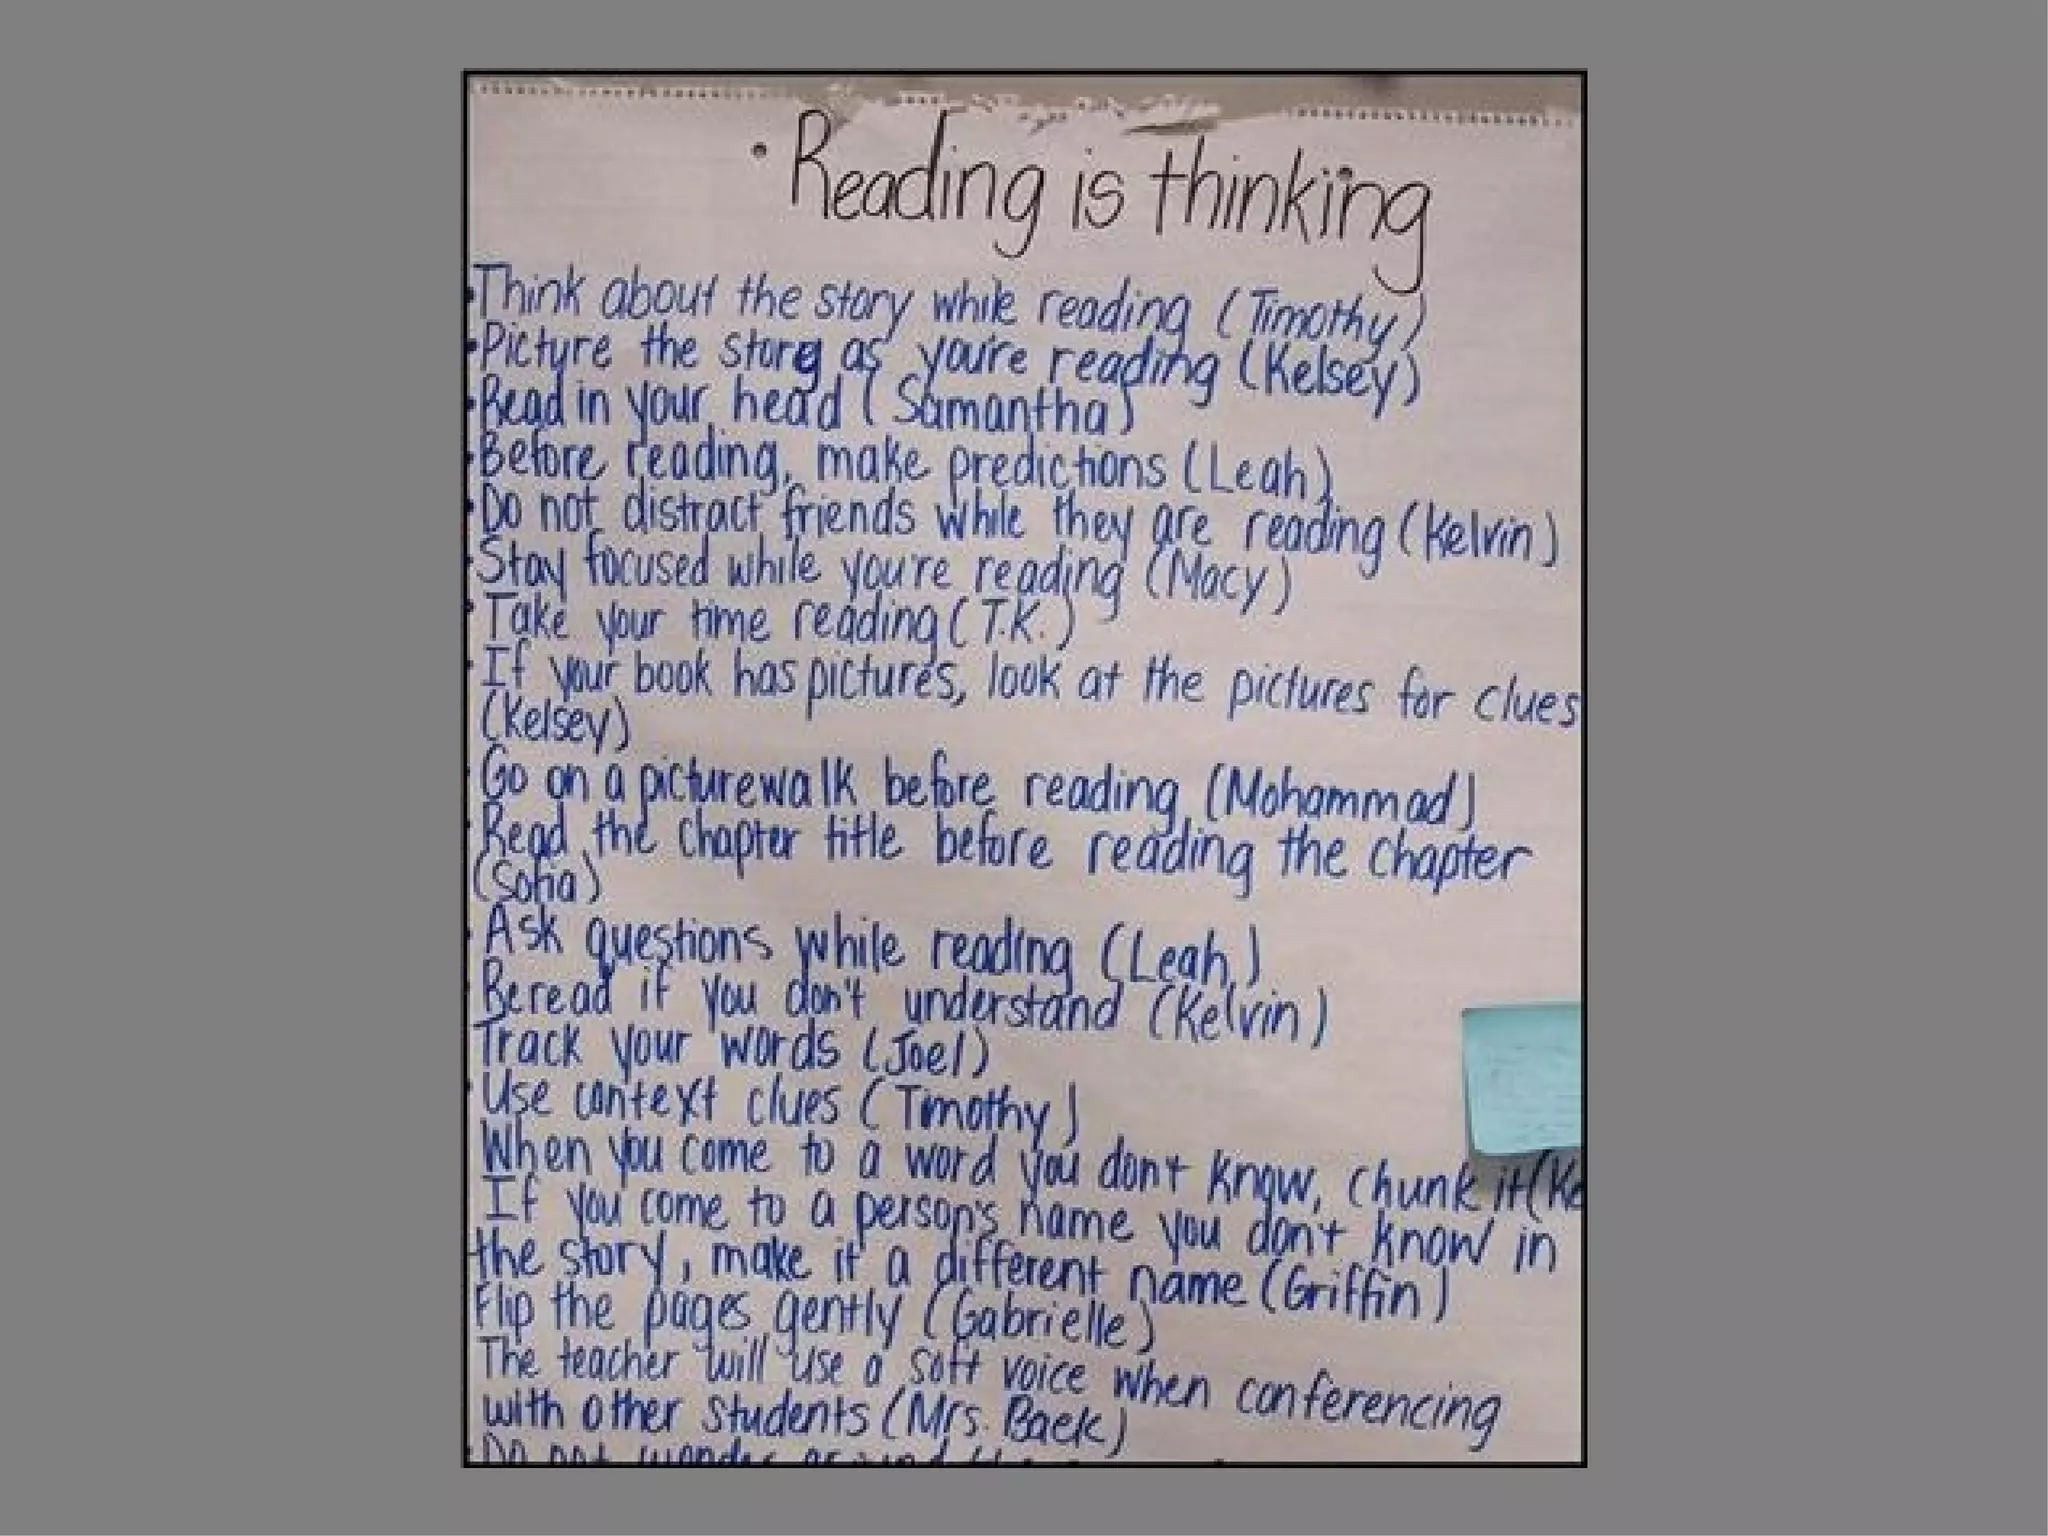 • Reading is thinking
• Think about the story while reading (Timothy)
• Picture the story as you're reading (Kelsey)
• Read in your head (Samantha)
• Before reading, make predictions (Leah)
• Do not distract friends while they are reading (Kelvin)
• Stay focused while you're reading (Macy)
• Take your time reading (T.K.)
• If your book has pictures, look at the pictures for clues
(Kelsey)
• Go on a picturewalk before reading (Mohammad)
• Read the chapter title before reading the chapter
(Sofia)
• Ask questions while reading (Leah)
• Reread if you don't understand (Kelvin)
Track your words (Joel)
• Use context clues (Timothy)
When you come to a word you don't know, chunk it (Ke
If you come to a person's name you don't know in
the story, make it a different name (Griffin)
Flip the pages gently (Gabrielle)
The teacher will use a soft voice when conferencing
with other students (Mrs. Baek)
• Do not wander around